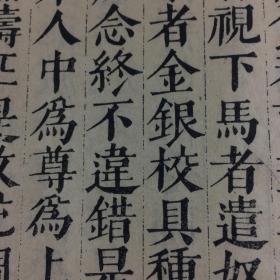 視下馬者遣奴
者金銀校具種
念終不違錯是
人中為尊為上